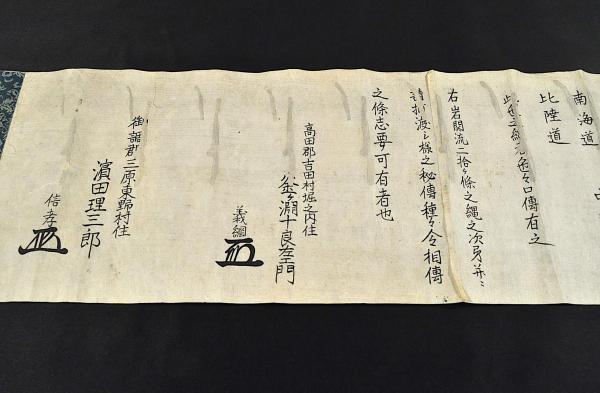 南海道
北陸道
口傳有之
右岩関流二拾ヶ條之縄之次第并ニ
渡シ様之秘傳種々令相傳
之條志要可有者也
高田郡吉田村堀之内住
釜ヶ淵十良左衛門
義綱
御調郡三原東野村住
濱田理三郎
信孝